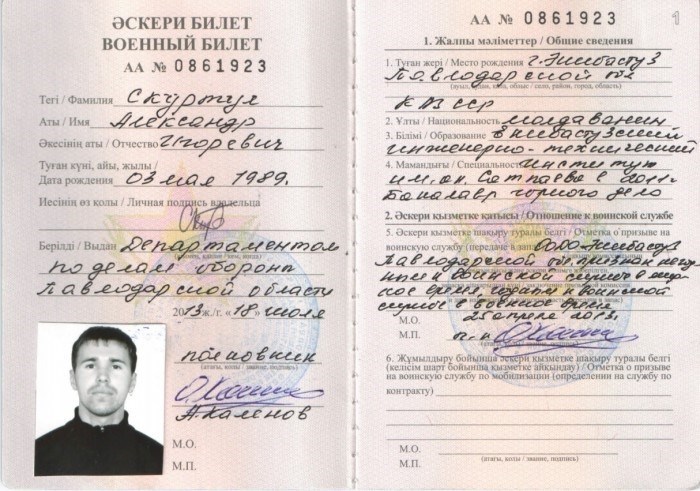 ӘСКЕРИ БИЛЕТ
ВОЕННЫЙ БИЛЕТ
АА № 0861923
Тегі / Фамилия Скуртул
Аты / Имя Александр
Әкесінің аты / Отчество Игоревич
Туған күні, айы, жылы /
Дата рождения 03 мая 1989г.
Иесінің өз қолы / Личная подпись владельца
Берілді / Выдан Департаментом
по делам обороны
Павлодарской области
2013 ж./г. «18» июля
полковник
(атағы, қолы / звание, подпись)
А. Каленов
М.О.
М.П.
АА № 0861923 1
1. Жалпы мәліметтер / Общие сведения
1. Туған жері / Место рождения г. Экибастуз
Павлодарской обл
(ауыл, аудан, қала, облыс / село, район, город, область)
КАЗ ССР
2. Ұлты / Национальность молдаванин
3. Білімі / Образование Экибастузский
инженерно-технический
4. Мамандығы / Специальность институт
им. ак. Сатпаева в 2011г.
Бакалавр горного дела
2. Әскери қызметке қатысы / Отношение к воинской службе
5. Әскери қызметке шақыру туралы белгі / Отметка о призыве на
воинскую службу (передаче в запас) ОДО Экибастуз
Павлодарской обл признан негод-
ным к воинской службе в мир-
ное время, годен к воинской
службе в военное время
25 апреля 2013г.
М.О.
М.П.
6. Жұмылдыру бойынша әскери қызметке шақыру туралы белгі
(келісім шарт бойынша қызметке айқындау) / Отметка о призыве
на воинскую службу по мобилизации (определении на службу по
контракту)
М.О.
М.П.
(атағы, қолы / звание, подпись)